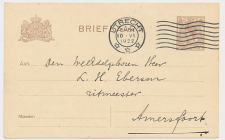 BRIEFKAART
UTRECHT
1922
Aan
Den Weledelgeboren Heer
L. H. Eberson
ritmeester
Amersfoort